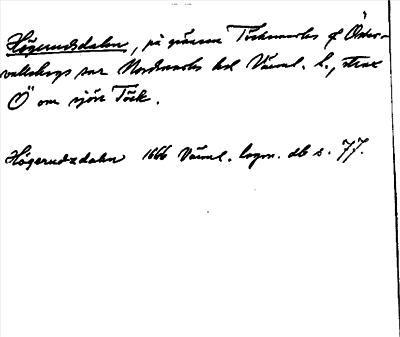 Högerudsdalen, på gränsen Töcksmarks o Öster-
vallskogs snr Nordmarks hd Värml. l., strax
Ö om sjön Töck.
Högerudzdalen 1666 Värml. lagm. db s. 77.